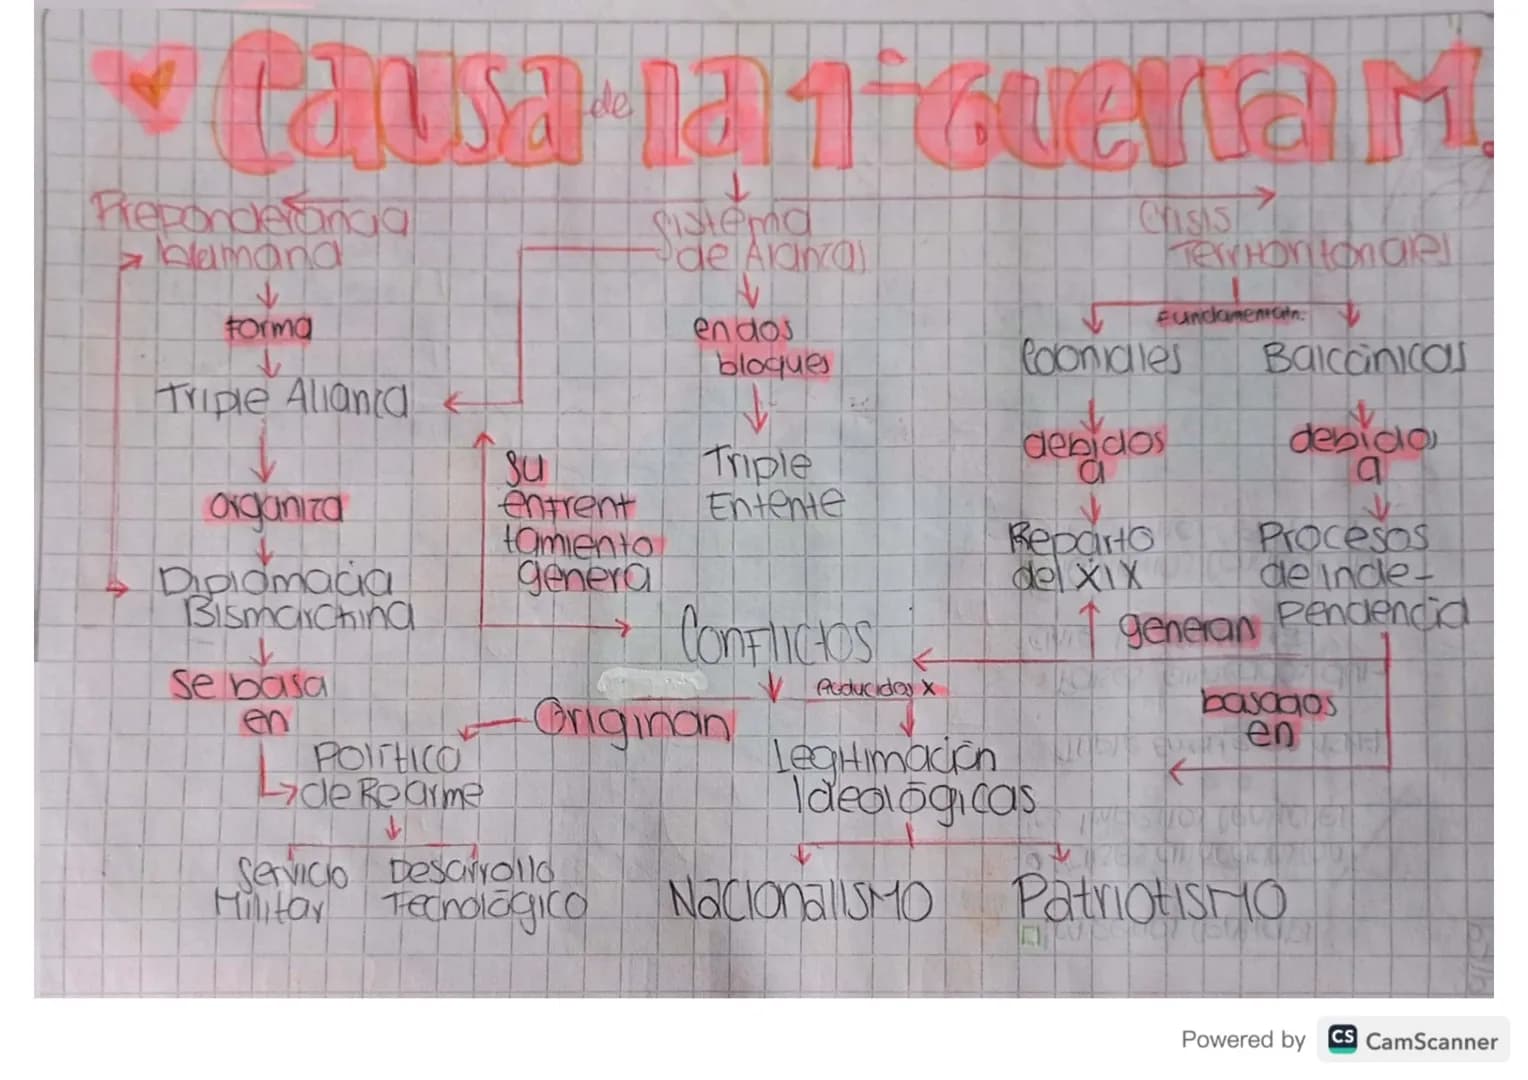 Causa de la 1ª Guerra M.
Preponderancia
alemana
forma
Triple Alianza
organiza
Diplomacia
Bismarckina
se basa
en
Politica
de Rearme
Servicio
Militar
Desarrollo
Tecnológico
Sistema
de Alianzas
en dos
bloques
Triple
Entente
su
enfrent
tamiento
genera
Conflictos
Originan
Legitimación
Ideológicas
Nacionalismo
Patriotismo
Crisis
Coloniales
debidos
a
Reparto
del XIX
Balcánicas
debidos
a
Procesos
de inde-
pendencia
generan
basados
en
Powered by CS CamScanner